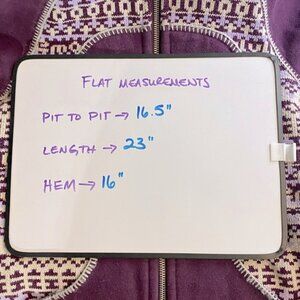 FLAT MEASUREMENTS
PIT TO PIT → 16.5"
LENGTH → 23"
HEM → 16"